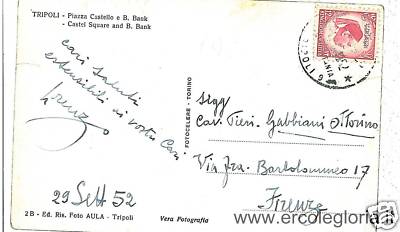 TRIPOLI - Piazza Castello e B. Bank
- Castel Square and B. Bank
cari saluti
estensibili ai vostri Cari
Lorenzo
29 Sett 52
2 B - Ed. Ris. Foto AULA - Tripoli
Vera Fotografia
FOTOCELERE - TORINO
TRIPOLI
Sigg
Cav. Pieri. Gabbiani
Via Fra. Bartolommeo 17
Firenze
www.ercolegloria.it